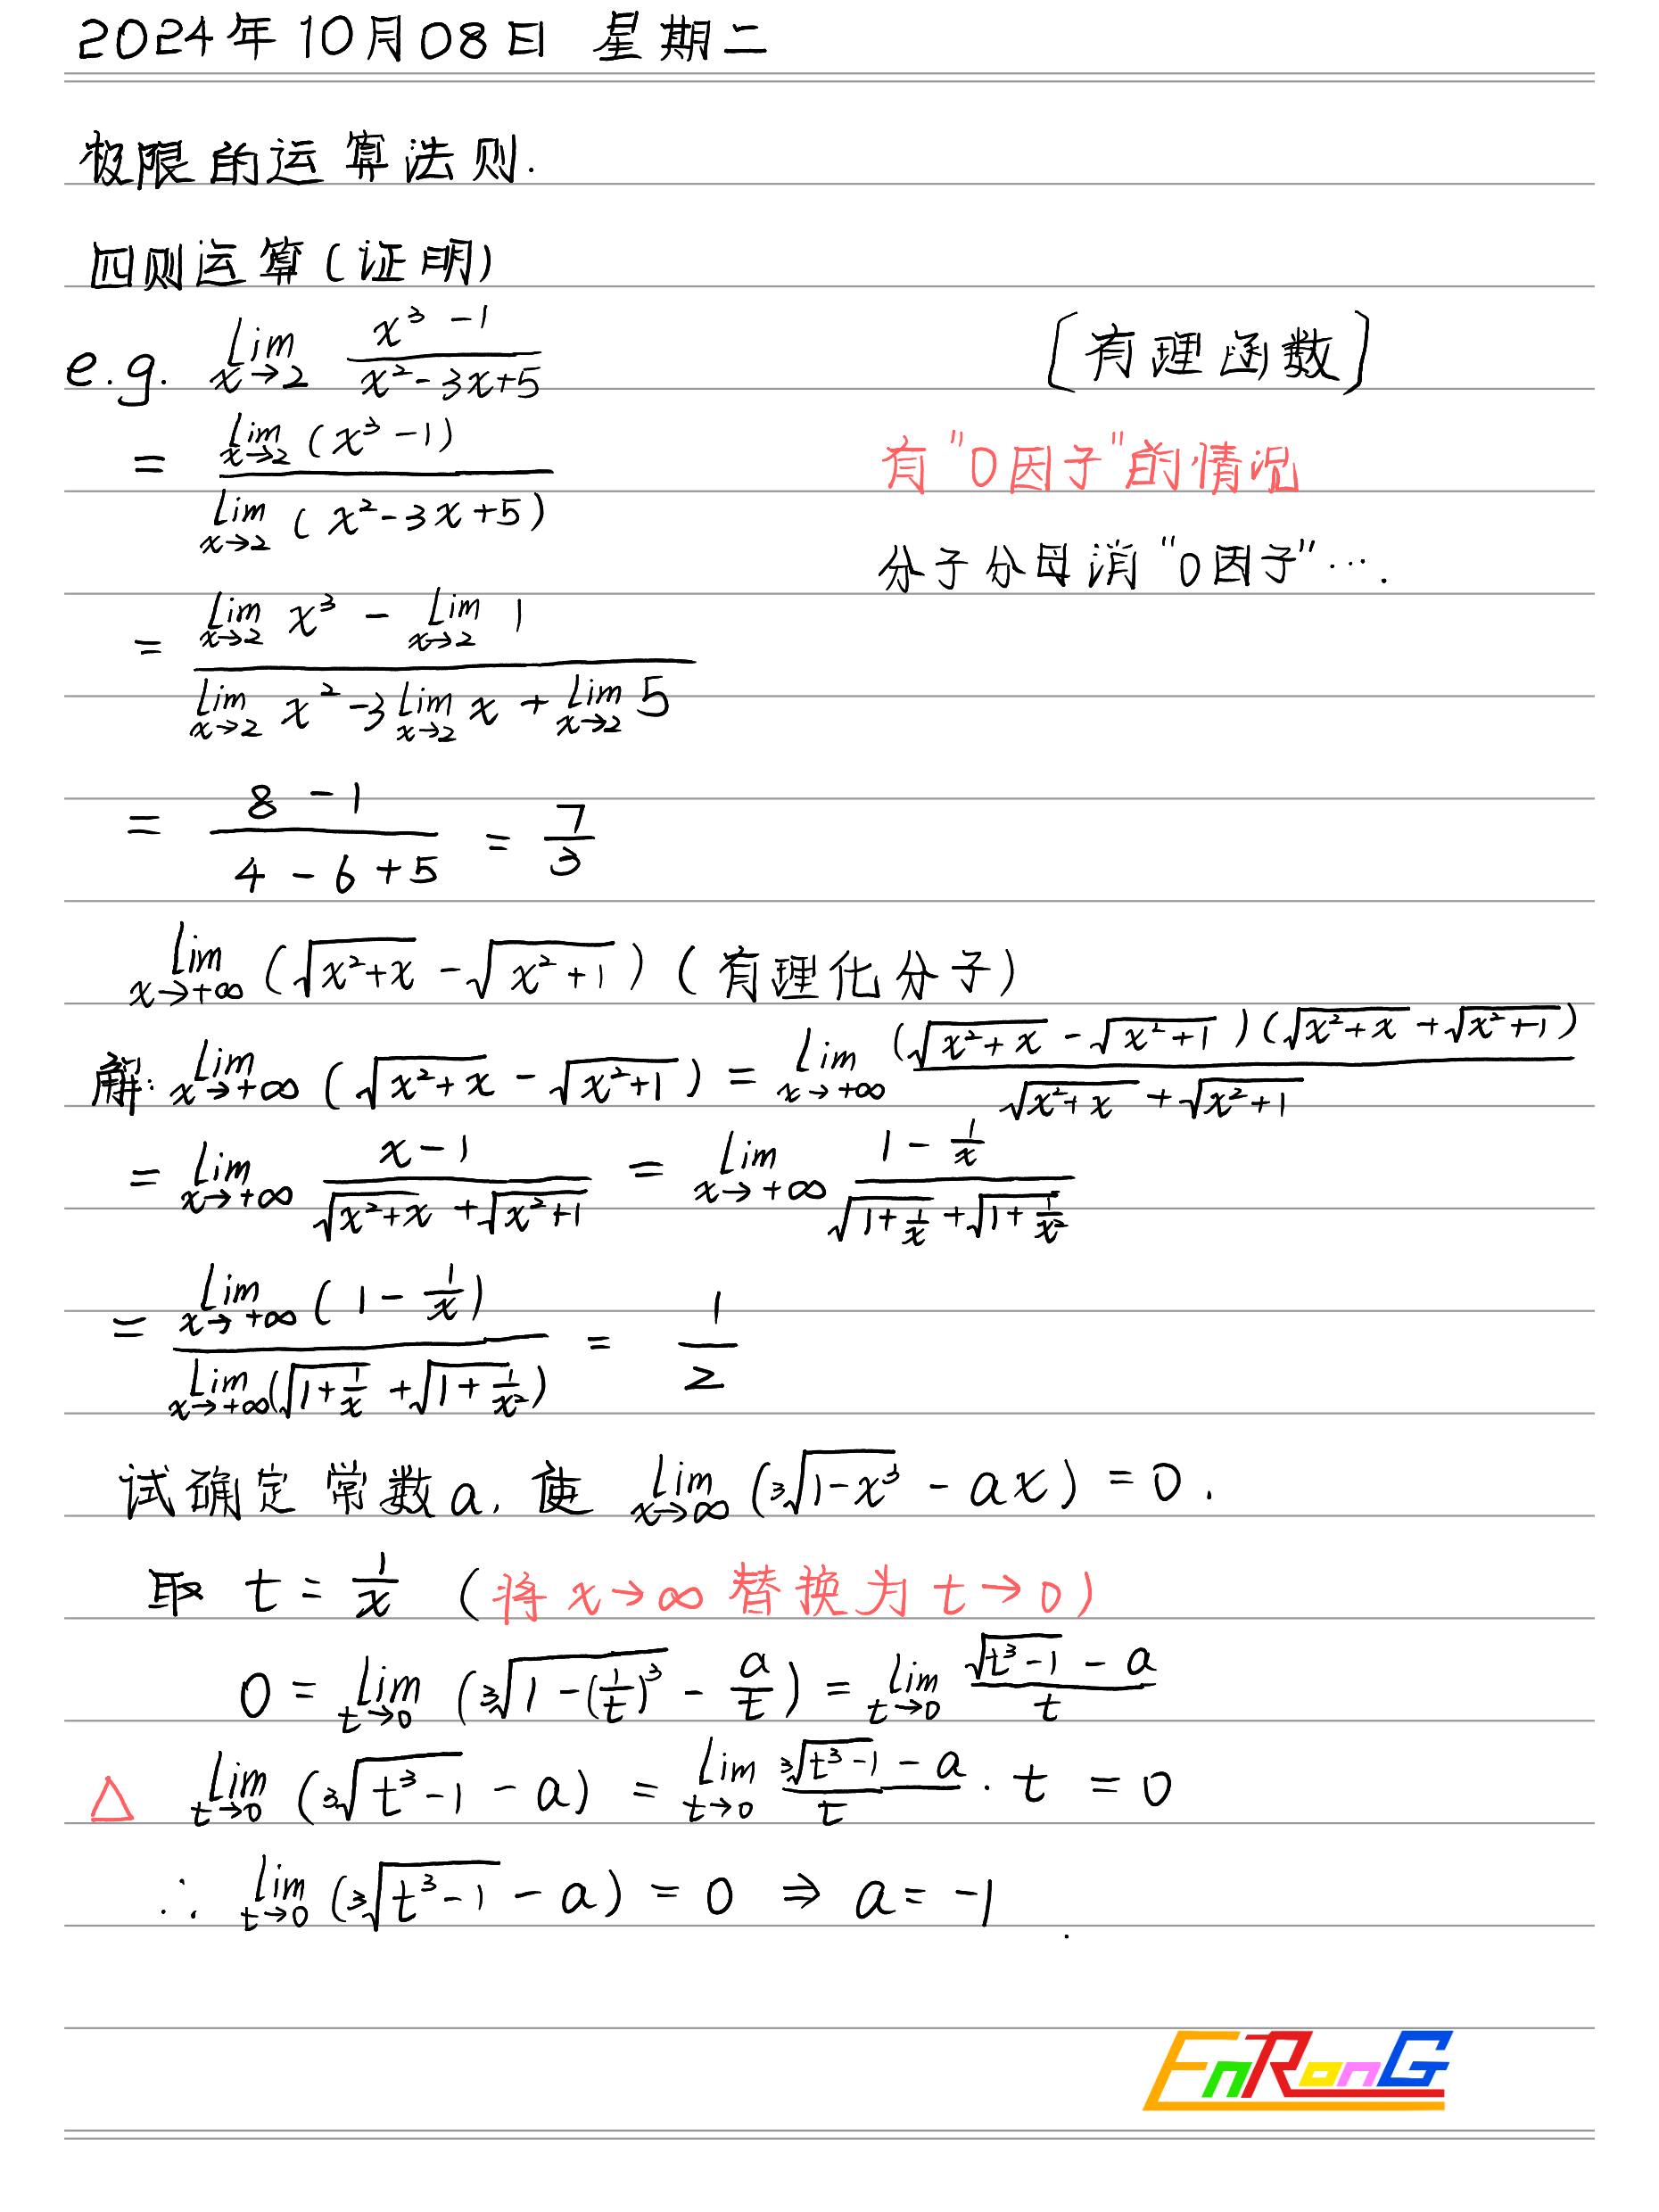 2024年10月08日 星期二
极限的运算法则.
四则运算(证明)
e.g. lim_{x→2} (x³-1)/(x²-3x+5) [有理函数]
= lim_{x→2}(x³-1) / lim_{x→2}(x²-3x+5)
有"0因子"的情况
分子分母消"0因子"….
= (lim_{x→2} x³ - lim_{x→2} 1) / (lim_{x→2} x² - 3 lim_{x→2} x + lim_{x→2} 5)
= (8-1)/(4-6+5) = 7/3
lim_{x→+∞} (√(x²+x) - √(x²+1)) (有理化分子)
解: lim_{x→+∞} (√(x²+x) - √(x²+1)) = lim_{x→+∞} (√(x²+x) - √(x²+1))(√(x²+x) + √(x²+1)) / (√(x²+x) + √(x²+1))
= lim_{x→+∞} (x-1)/(√(x²+x) + √(x²+1)) = lim_{x→+∞} (1-1/x)/(√(1+1/x) + √(1+1/x²))
= lim_{x→+∞}(1-1/x) / lim_{x→+∞}(√(1+1/x) + √(1+1/x²)) = 1/2
试确定常数a, 使 lim_{x→∞} (³√(1-x³) - ax) = 0.
取 t = 1/x (将x→∞替换为t→0)
0 = lim_{t→0} (³√(1-(1/t)³) - a/t) = lim_{t→0} (√(t³-1) - a)/t
△ lim_{t→0} (³√(t³-1) - a) = lim_{t→0} (³√(t³-1) - a)/t · t = 0
∴ lim_{t→0} (³√(t³-1) - a) = 0 ⇒ a = -1.
EnRonG